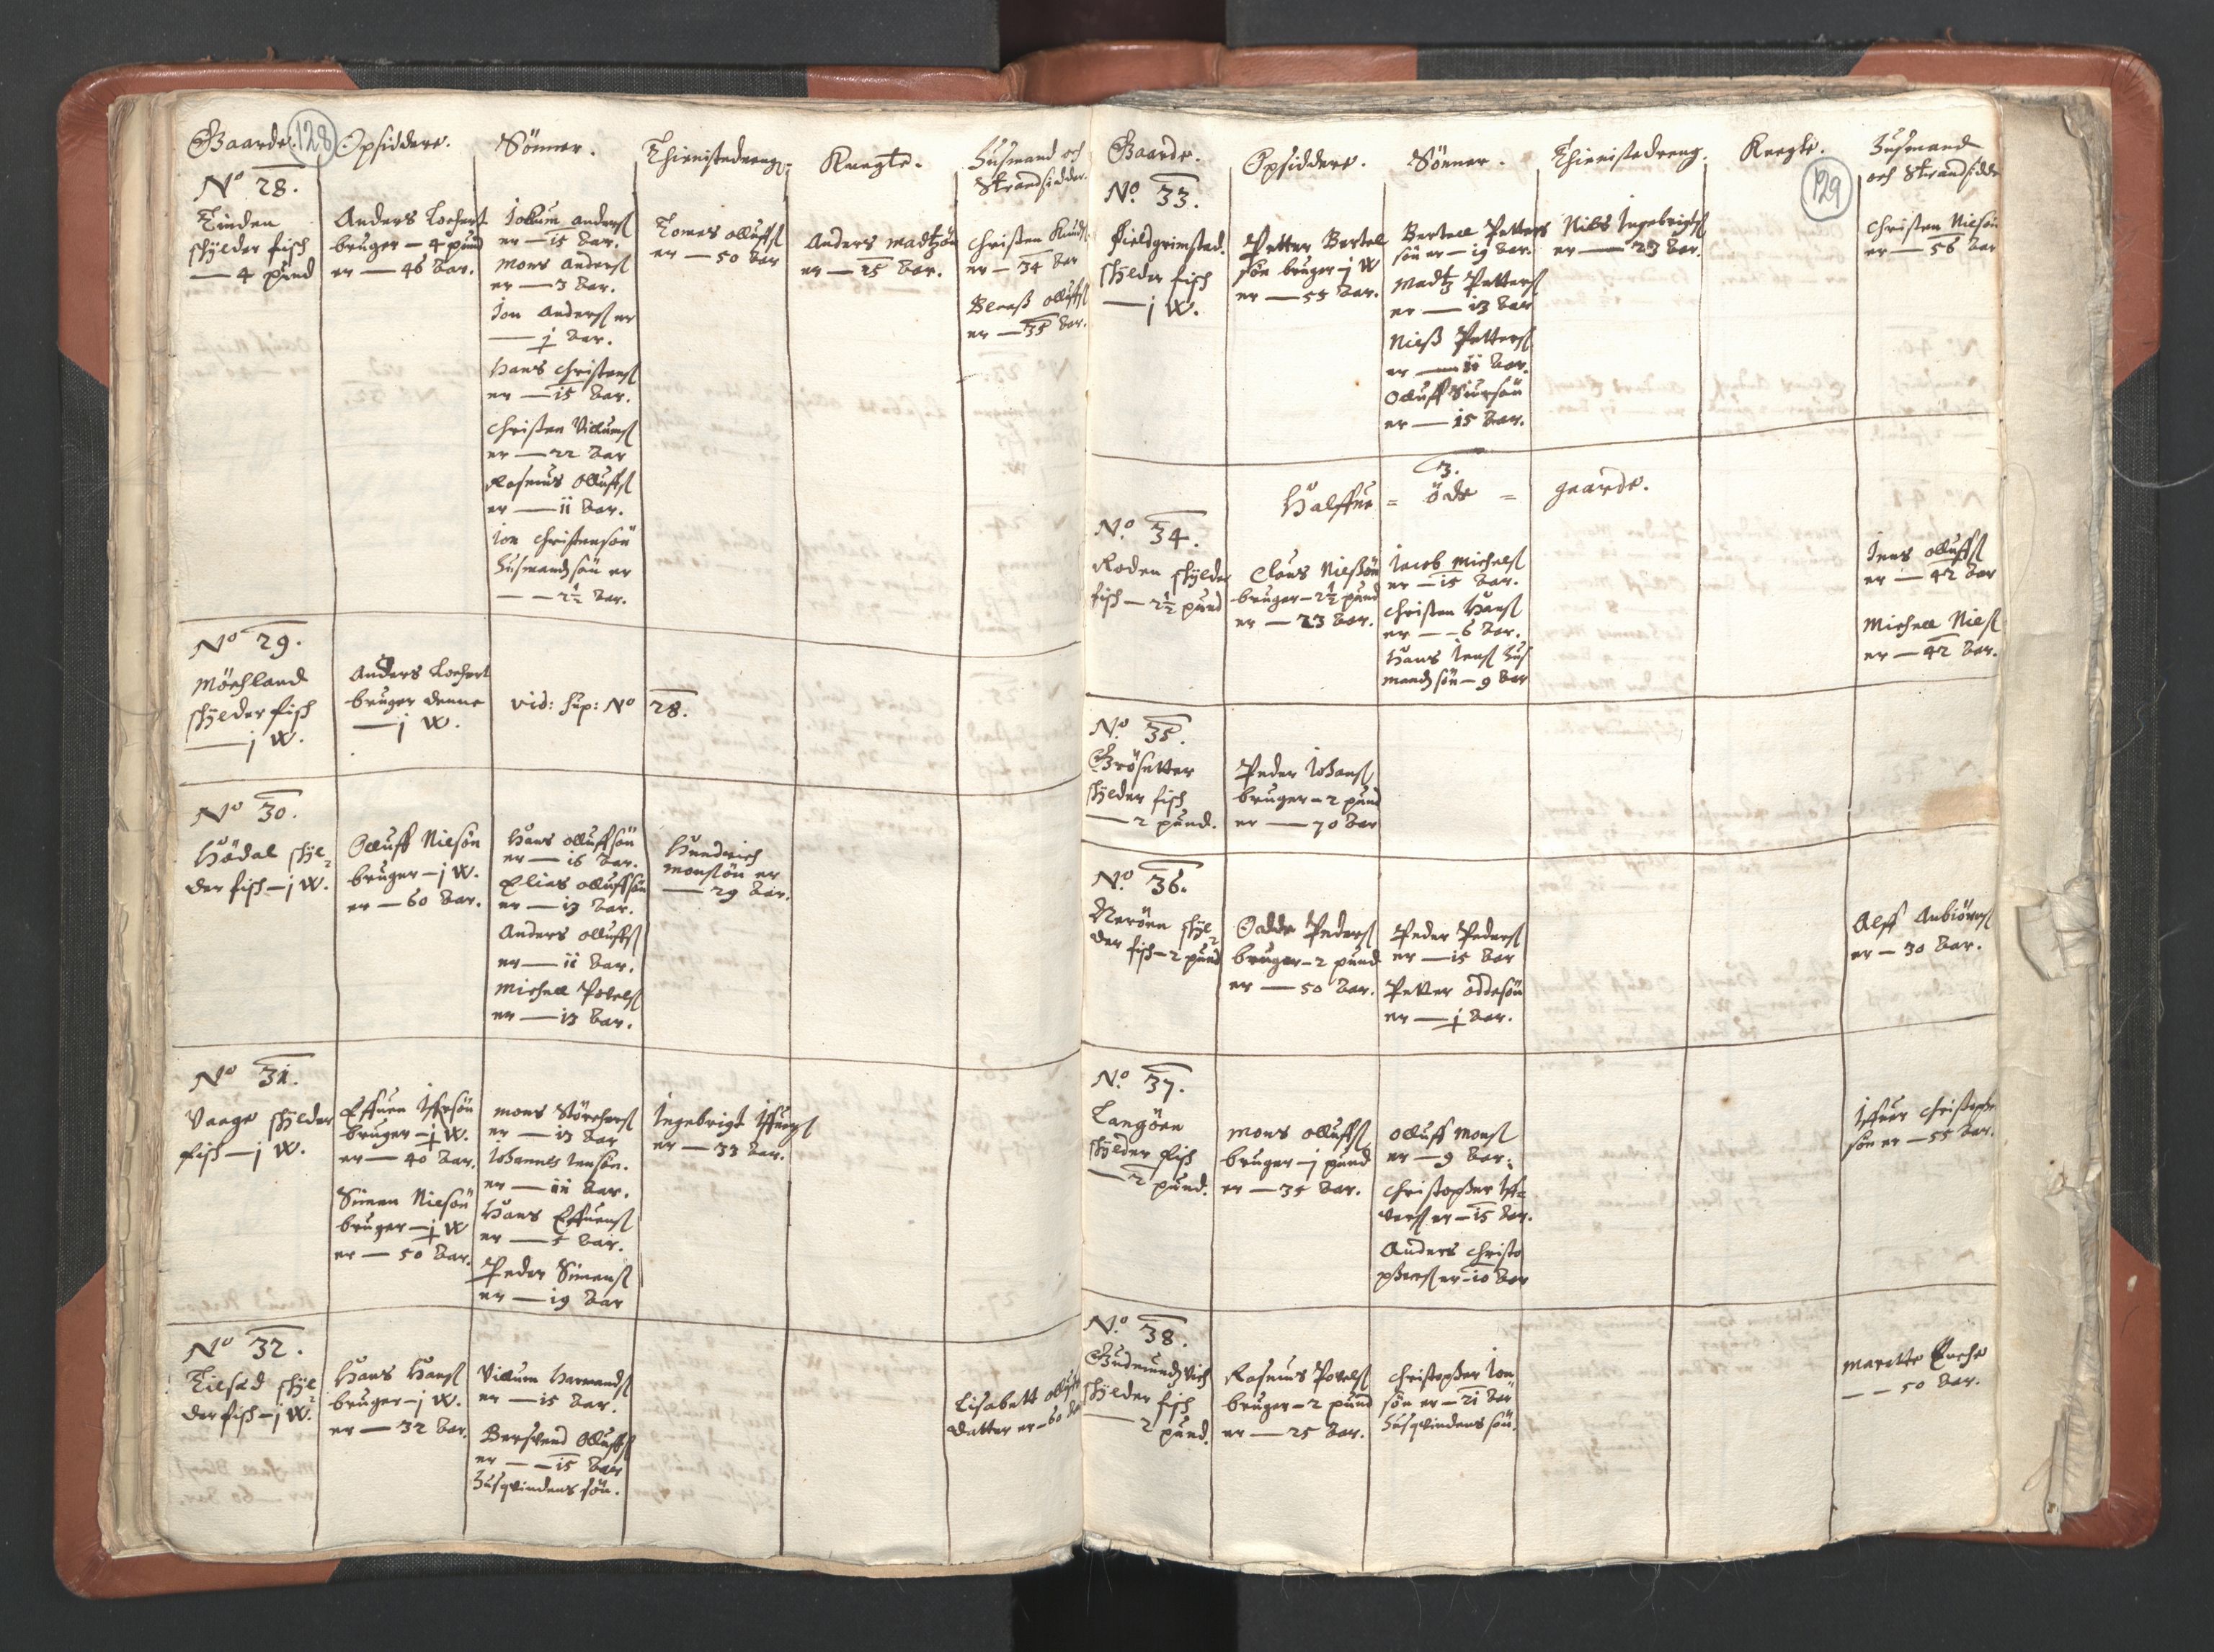 Gaarde.
128
Opsiddere.
Sönner.
Thienistedreng.
Knegte.
Husmand och
Strandsidder.
No 28.
Tinden
schÿlder fisch
— 4 pund
Anders Lochert
bruger — 4 pund
er — 46 aar.
Jokum Anderß
er — 15 aar.
Mons Anderß
er — 3 aar.
Jon Anderß er
— j aar.
Hans Christenß
er — 15 aar.
Christen Villumß
er — 22 aar
Rasmus Olluffß
er — 11 aar.
Jon Christensön
husmandß sön er
— — 2½ aar.
Tomes Olluffß
er — 50 aar
Anders Madtzön
er — 25 aar.
Christen Knudß
er — 34 aar
Olluffß
er — 35 aar.
No 29.
Möchland
schÿlder fisch
— j W.
Anders Lochert
bruger denne
— j W.
vid: sup: No 28.
No 30.
Hödal schÿl-
der fisch — j W.
Olluff Nilsön
bruger — j W.
er — 60 aar.
Hans Olluffsön
er — 16 aar.
Elias Olluffsön
er — 13 aar.
Anders Olluffß
er — 11 aar.
Michell Povelß
er — 13 aar.
Hendrich
Monsön er
— 29 aar.
No 31.
Vaage schÿlder
fisch — j W.
Effuen Iffersön
bruger — ½ W.
er — 40 aar.
Simen Nilsön
bruger — ½ W
er — 50 aar.
Mons Störchersß
er — 13 aar
Johannes Jensön.
er — 11 aar.
Hans Effuenß
er — 5 aar.
Peder Simenß
er — 19 aar
Ingebrigt Iffuerß
er — 33 aar.
No 32.
Tilsed schÿl-
der fisch — j W.
Hans Hanß
bruger — j W.
er — 32 aar.
Villum Harmandß
er — 15 aar.
Bersvend Olluffß
er — — 15 aar
husqvindens sön.
Lisabett Olluffs
datter er — 60 aar
Gaarde.
Opsiddere.
Sönner.
Thienistedreng.
Knegte.
Husmand
och Strandsidder
129
No. 33.
Fieldgrimstad.
schÿlder fisch
— j W.
Petter Bertel
sön bruger — j W
er — 55 aar.
Bertell Petters
sön er — 19 aar.
Madtz Petterß
er — 13 aar
Nielß Petterß
er — 11 aar.
Olluff Siursön
er — 15 aar.
Nils Ingebrigtß
er — 23 aar.
Christen Nielsön
er — 56 aar
3.
Halffue = öde = gaarde.
No. 34.
Roden schÿlder
fisch — 2½ pund
Claus Nielßön
bruger — 2½ pund
er — 23 aar.
Jacob Michelß
er — 15 aar.
Christen Hanß
er — — 6 aar.
Hans Jenß hus
mandß sön — 9 aar
Jens Olluffß
er — 42 aar
Michell Nielß
er — 42 aar.
No. 35.
Grösetter
schÿlder fisch
— 2 pund.
Peder Johanß
bruger — 2 pund
er — 70 aar
No. 36.
Neröen schÿl-
der fisch — 2 pund
Oadde Pederß
bruger — 2 pund
er — 50 aar.
Peder Pederß
er — 15 aar
Petter Oddesön
er — j aar.
Alff Anbiörnß
er — 30 aar.
No. 37.
Langöen
schÿlder fisch
— 2 pund.
Mons Olluffß
bruger — j pund
er — 35 aar.
Olluff Monß
er — 9 aar.
Christopher Iff-
verß er — 15 aar.
Anders Christo
phersß er — 10 aar
Iffuer Christopher
sön er — 55 aar.
No. 38.
Gudmundß vich
schÿlder fisch
— 2 pund.
Rasmus Povelß
bruger — 2 pund
er — 25 aar.
Christopher Jon
sön er — 21 aar
husqvindens sön.
Marette Enche
— — 50 aar.